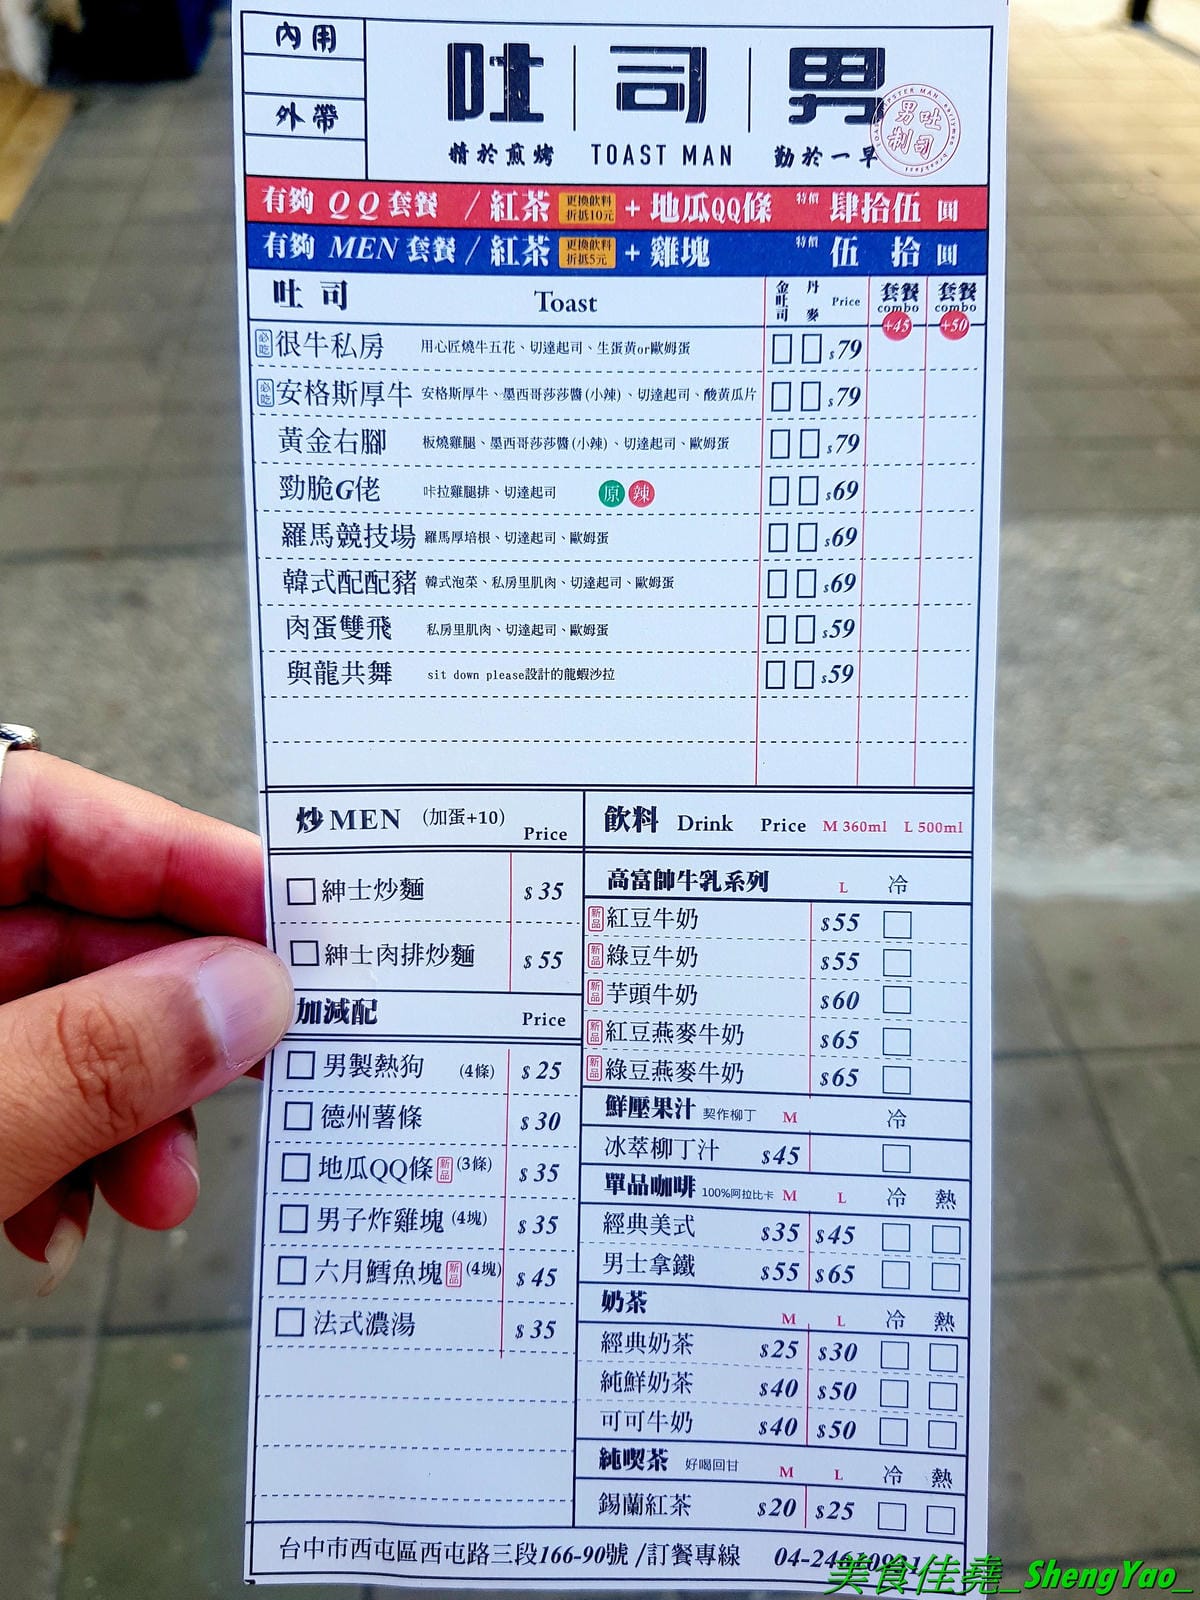 內用
外帶
吐 | 司 | 男
精於煎烤 TOAST MAN 勤於一早
男吐
制司
有夠 QQ 套餐 / 紅茶 更換飲料 折抵10元 + 地瓜QQ條 特價 肆拾伍 圓
有夠 MEN 套餐 / 紅茶 更換飲料 折抵5元 + 雞塊 特價 伍 拾 圓
吐司 Toast 金吐司 丹麥 Price 套餐 combo +45 套餐 combo +50
必吃 很牛私房 用心匠燒牛五花、切達起司、生蛋黃or歐姆蛋 $79
必吃 安格斯厚牛 安格斯厚牛、墨西哥莎莎醬(小辣)、切達起司、酸黃瓜片 $79
黃金右腳 板燒雞腿、墨西哥莎莎醬(小辣)、切達起司、歐姆蛋 $79
勁脆G佬 咔拉雞腿排、切達起司 原 辣 $69
羅馬競技場 羅馬厚培根、切達起司、歐姆蛋 $69
韓式配配豬 韓式泡菜、私房里肌肉、切達起司、歐姆蛋 $69
肉蛋雙飛 私房里肌肉、切達起司、歐姆蛋 $59
與龍共舞 sit down please設計的龍蝦沙拉 $59
炒MEN (加蛋+10) Price
紳士炒麵 $35
紳士肉排炒麵 $55
加減配 Price
男製熱狗 (4條) $25
德州薯條 $30
地瓜QQ條 新品 (3條) $35
男子炸雞塊 (4塊) $35
六月鱈魚塊 新品 (4塊) $45
法式濃湯 $35
飲料 Drink Price M 360ml L 500ml
高富帥牛乳系列 L 冷
新品 紅豆牛奶 $55
新品 綠豆牛奶 $55
新品 芋頭牛奶 $60
新品 紅豆燕麥牛奶 $65
新品 綠豆燕麥牛奶 $65
鮮壓果汁 契作柳丁 M 冷
冰萃柳丁汁 $45
單品咖啡 100%阿拉比卡 M L 冷 熱
經典美式 $35 $45
男士拿鐵 $55 $65
奶茶 M L 冷 熱
經典奶茶 $25 $30
純鮮奶茶 $40 $50
可可牛奶 $40 $50
純喫茶 好喝回甘 M L 冷 熱
錫蘭紅茶 $20 $25
台中市西屯區西屯路三段166-90號 /訂餐專線
美食佳堯_ShengYao_